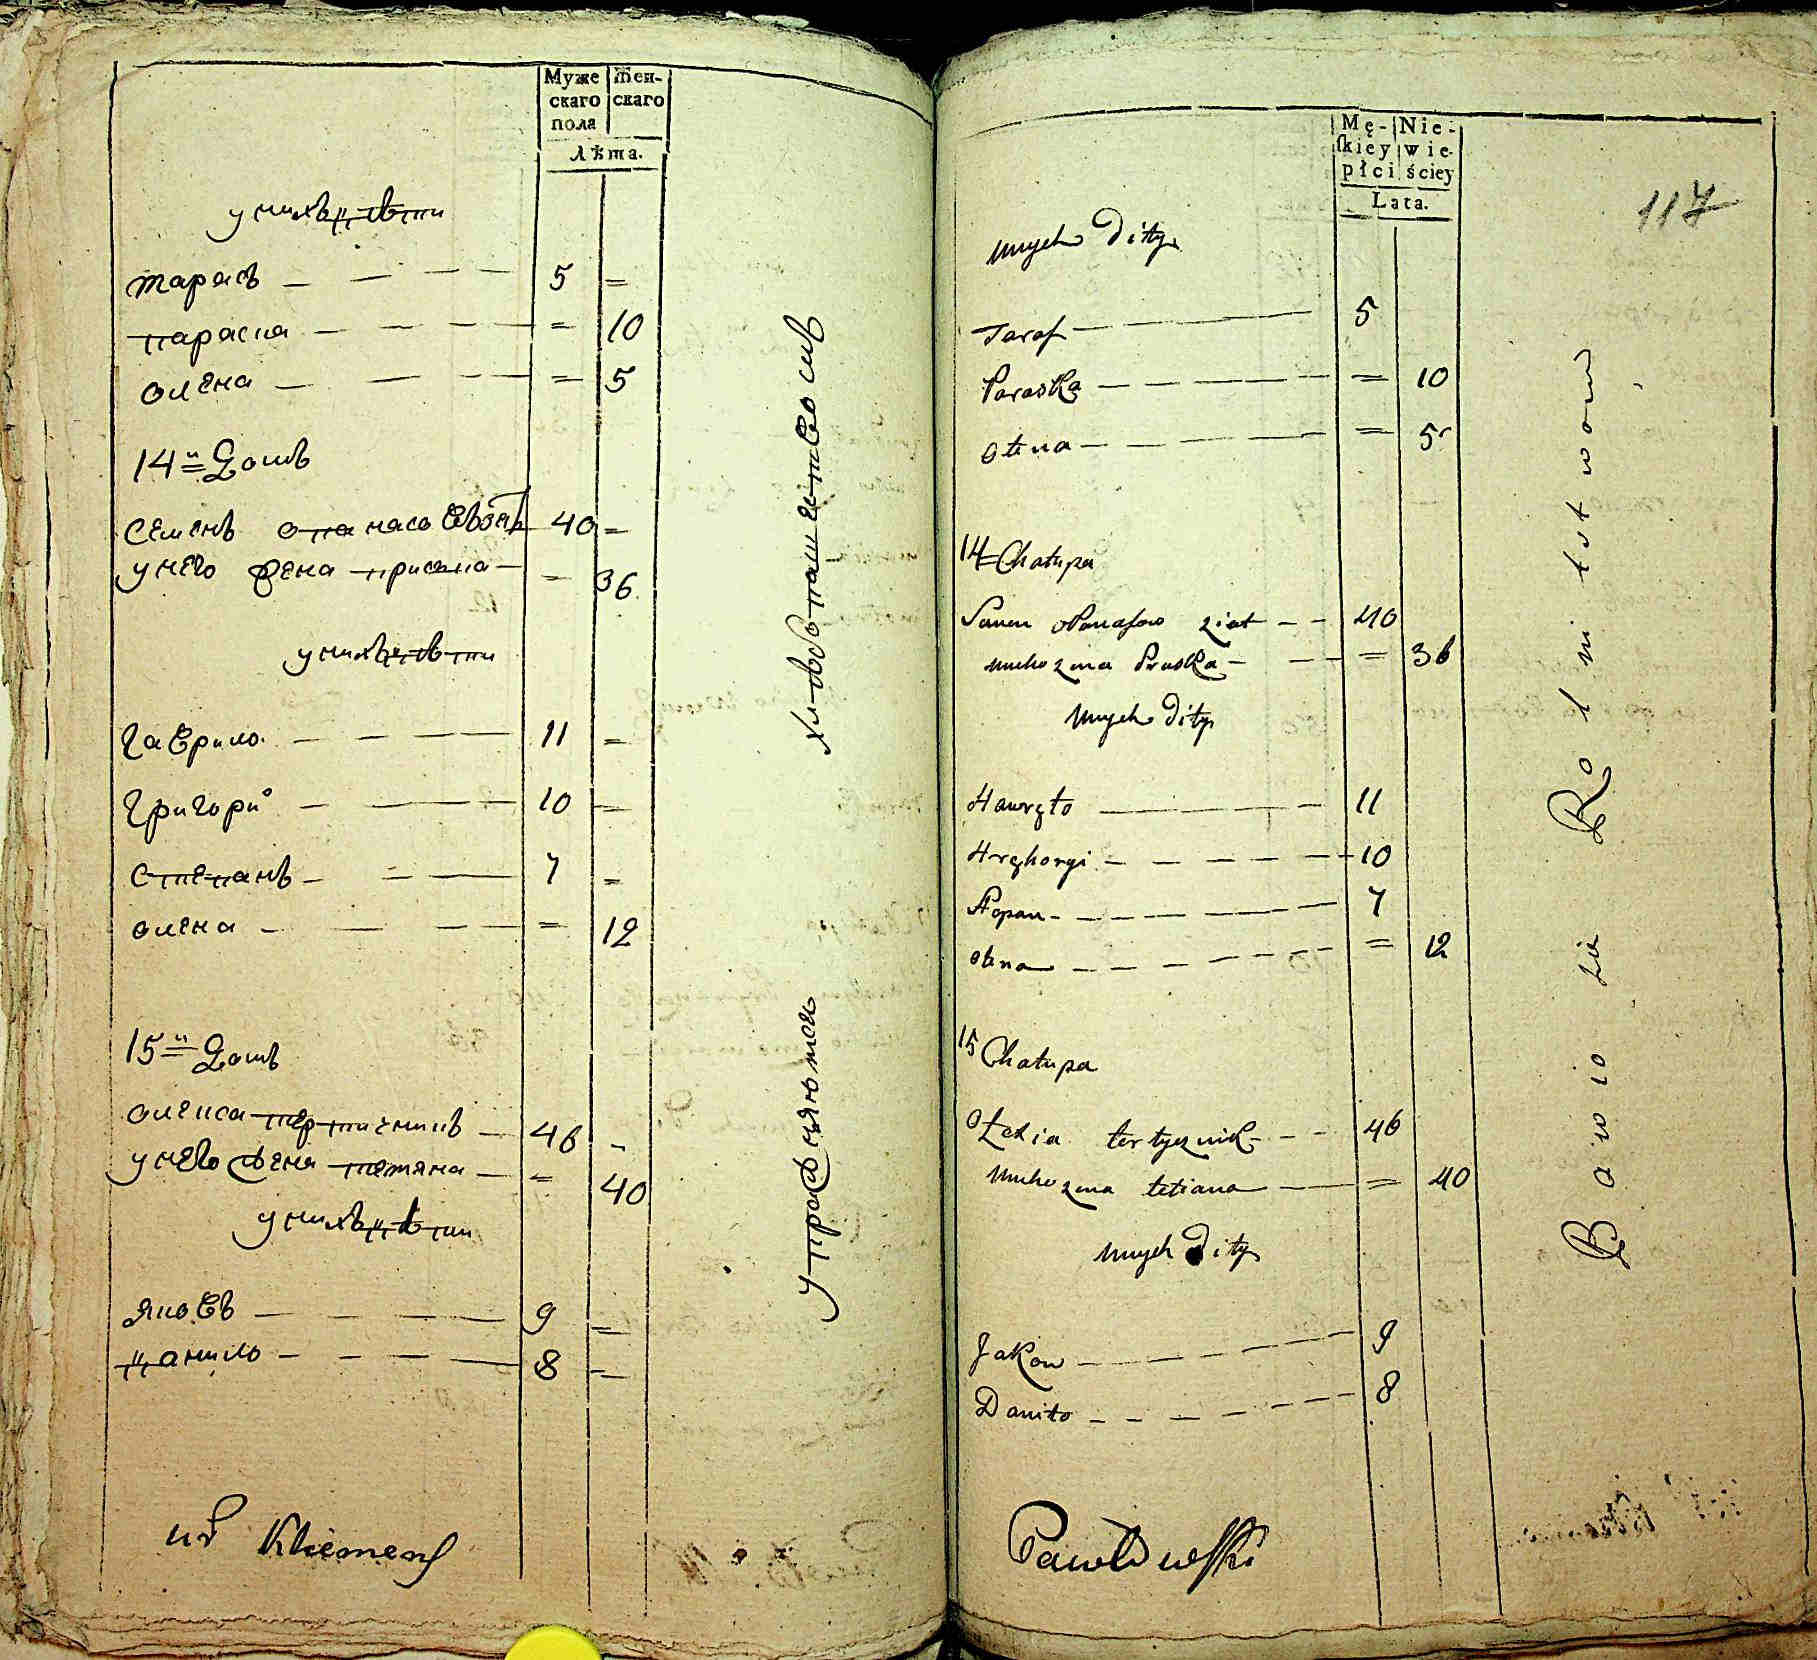 Муже
скаго
пола
Жен-
скаго
лѣта.
у нихъ дѣти
тарасъ — — — 5 =
параска — — — = 10
олена — — — = 5
14й = домъ
семенъ опанасо взять 40 =
у него жена приска — = 36
у нихъ дѣти
гаврило — — — 11 =
григори — — — 10 =
степанъ — — — 7 =
олена — — — = 12
15й = домъ
олекса тертичникъ — 46 =
у него жена тетяна — = 40
у нихъ дѣти
яковъ — — — 9 =
данило — — — 8 =
хлѣбопашествомъ
упражняются
ur Klemens
Mę-
skiey
płci
Nie-
wie-
ściey
Lata.
117
unych dity
Taras — — — 5
Paraska — — — = 10
Olena — — — = 5
14 = Chałupa
Semen Opanasow ziat — — 40
unuho zena Pruska — — = 36
unych dity
Hawryło — — — 11
Hryhoryi — — — 10
Stepan — — — 7
Olena — — — = 12
15 Chałupa
Ołexia tertycznik — — 46
unuho zena tetiana — — = 40
unych dity
Jakow — — — 9
Daniło — — — 8
Bawio sie Rolnitstwom
Pawłowski